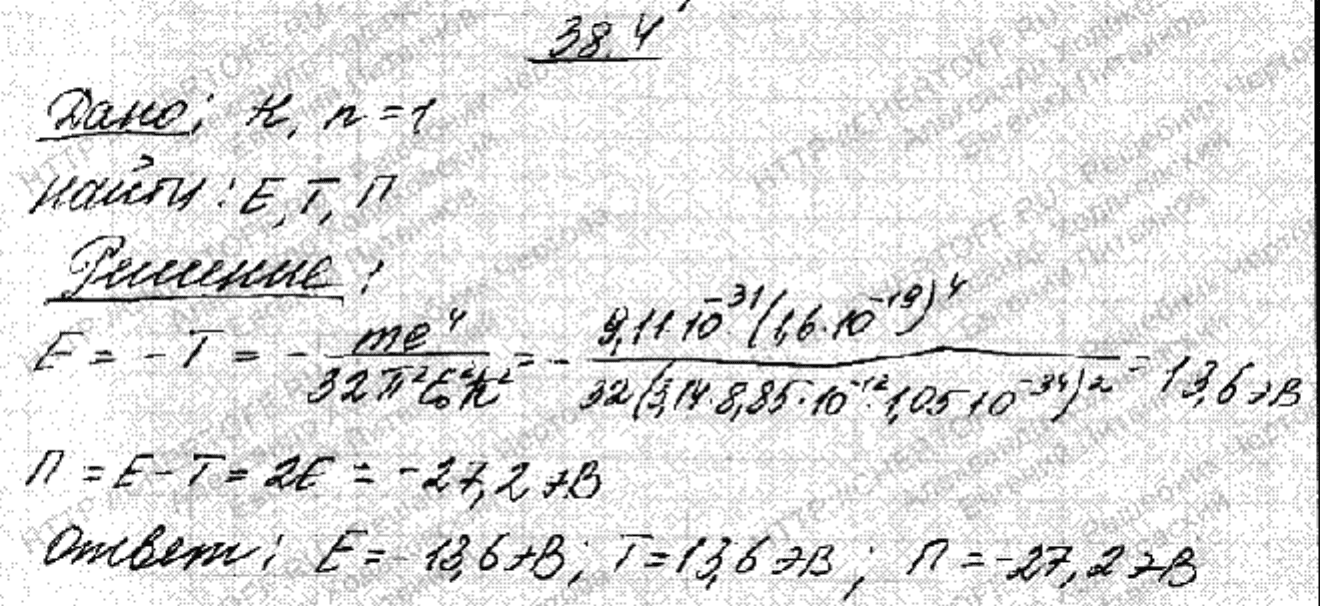 38.4
Дано: H, n = 1
Найти: E, T, П
Решение:
E = - T = - me⁴ / 32π²ε₀²ħ² = - 9,11·10⁻³¹(1,6·10⁻¹⁹)⁴ / 32(3,14·8,85·10⁻¹²·1,05·10⁻³⁴)² = 13,6 эВ
П = E - T = 2E = -27,2 эВ
Ответ: E = -13,6 эВ; T = 13,6 эВ; П = -27,2 эВ